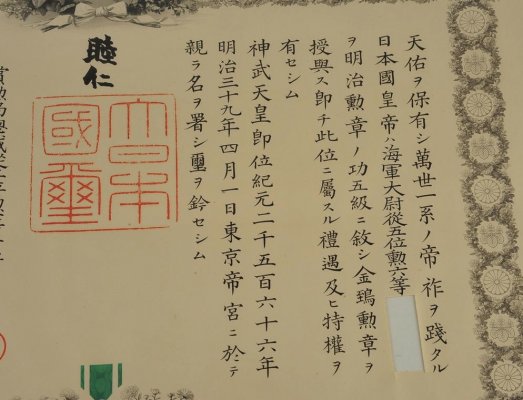 天佑ヲ保有シ萬世一系ノ帝祚ヲ踐タル
日本國皇帝ハ海軍大尉從五位勲六等
ヲ明治勲章ノ功五級ニ敍シ金鵄勲章ヲ
授與ス卽チ此位ニ屬スル禮遇及ヒ特權ヲ
有セシム
神武天皇卽位紀元二千五百六十六年
明治三十九年四月一日東京帝宮ニ於テ
親ラ名ヲ署シ璽ヲ鈐セシム
睦仁
大日本國璽